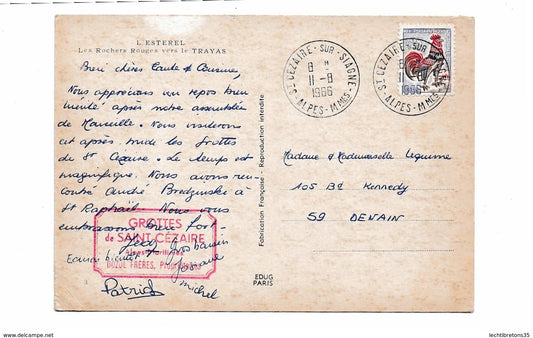 L'ESTEREL
Les Rochers Rouges vers le TRAYAS
Bien chères Tante & Cousine,
Nous apprécions un repos bien
mérité après notre assemblée
de Marseille. Nous visiterons
cet après midi les grottes
de St Cézaire. Le temps est
magnifique. Nous avons ren-
contré André Bredzinski à
St Raphaël. Nous vous
embrassons bien fort.
GROTTES
de SAINT-CÉZAIRE
FRÈRES,
Gros baisers
Josiane
michel
Patrick
Fabrication Française - Reproduction interdite
EDUG
PARIS
ST CEZAIRE-SUR-SIAGNE
8 H
11-8
1966
ALPES-M MES
ST CEZAIRE-SUR-SIAGNE
8 H
11-8
1966
ALPES-M MES
Madame & Mademoiselle Lequime
105 Bd Kennedy
59 DENAIN
www.lechtibretons35
lechtibretons35